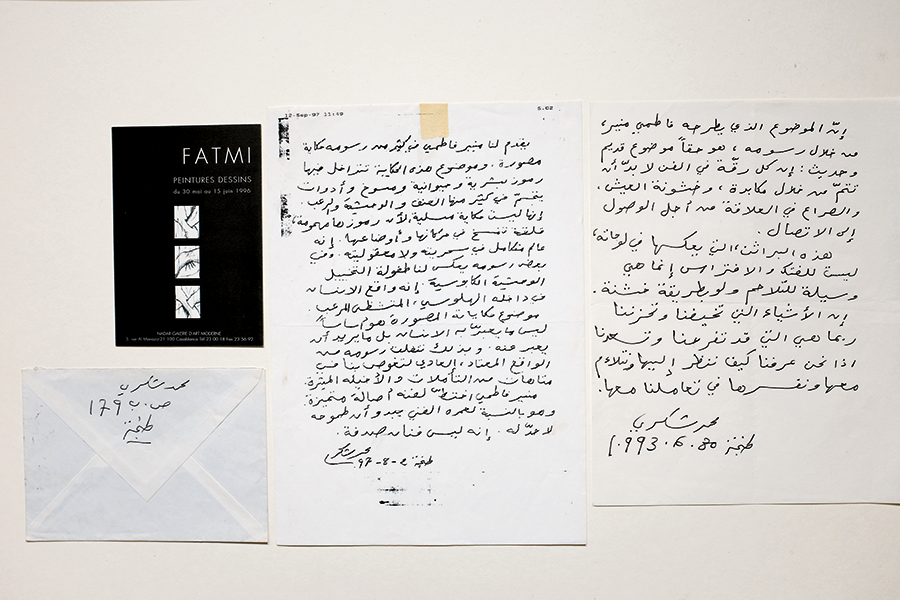 FATMI
PEINTURES DESSINS
du 30 mai au 15 juin 1996
NADAR GALERIE D'ART MODERNE
5, rue Al Manaziz 21 100 Casablanca Tél 23 00 08 Fax 23 56 92
محمد شكري
ص.ب 179
طنجة
12-Sep-97 11:49 S.02
يقدم لنا منير فاطمي في كثير من رسومه حكاية
مصورة. وموضوع هذه الحكاية تتداخل فيها
رموز بشرية وحيوانية ومسوخ وأدوات
في كثير منها العنف والوحشية والرعب.
إنها ليست حكاية مسلية لأن رموزها مهمومة،
قلقة تمسخ في حركاتها وأوضاعها. إنه
عالم متكامل في سريته ولا معقوليته. وفي
بعض رسومه يعكس لنا طفولة التخييل
الوحشية الكابوسية. إنه واقع الإنسان
في داخله الهلوسي، المتشظي المرعب.
موضوع حكاياته المصورة هو أساساً
ليس ما يعبر به الإنسان بل ما يريد أن
يعبر عنه. وبذلك تنفلت رسومه من
الواقع المعتاد، العادي لتغوص بنا في
متاهات من التأملات والأخيلة المثيرة.
منير فاطمي اختط لفنه أصالة متميزة
وهو بالنسبة لعمره الفني يبدو أن طموحه
لا حد له. إنه ليس فنان صدفة.
محمد شكري
طنجة 2-8-97
إنّ الموضوع الذي يطرحه فاطمي منير،
من خلال رسومه، هو حقاً موضوع قديم
وحديث: إن كل رقّة في الفن لا بدّ أن
تتمّ من خلال مكابدة، وخشونة العيش.
والصراع في العلاقة من أجل الوصول
إلى الاتصال.
هذه البراثن، التي يعكسها في لوحاته،
ليست للفتك والافتراس إنما هي
وسيلة للتلاحم ولو بطريقة خشنة.
إن الأشياء التي تخيفنا وتحزننا
ربما هي التي قد تفرحنا وتسعدنا
اذا نحن عرفنا كيف ننظر إليها ونتلاءم
معها ونفسرها في تعاملنا معها.
محمد شكري
طنجة 30.6.1993